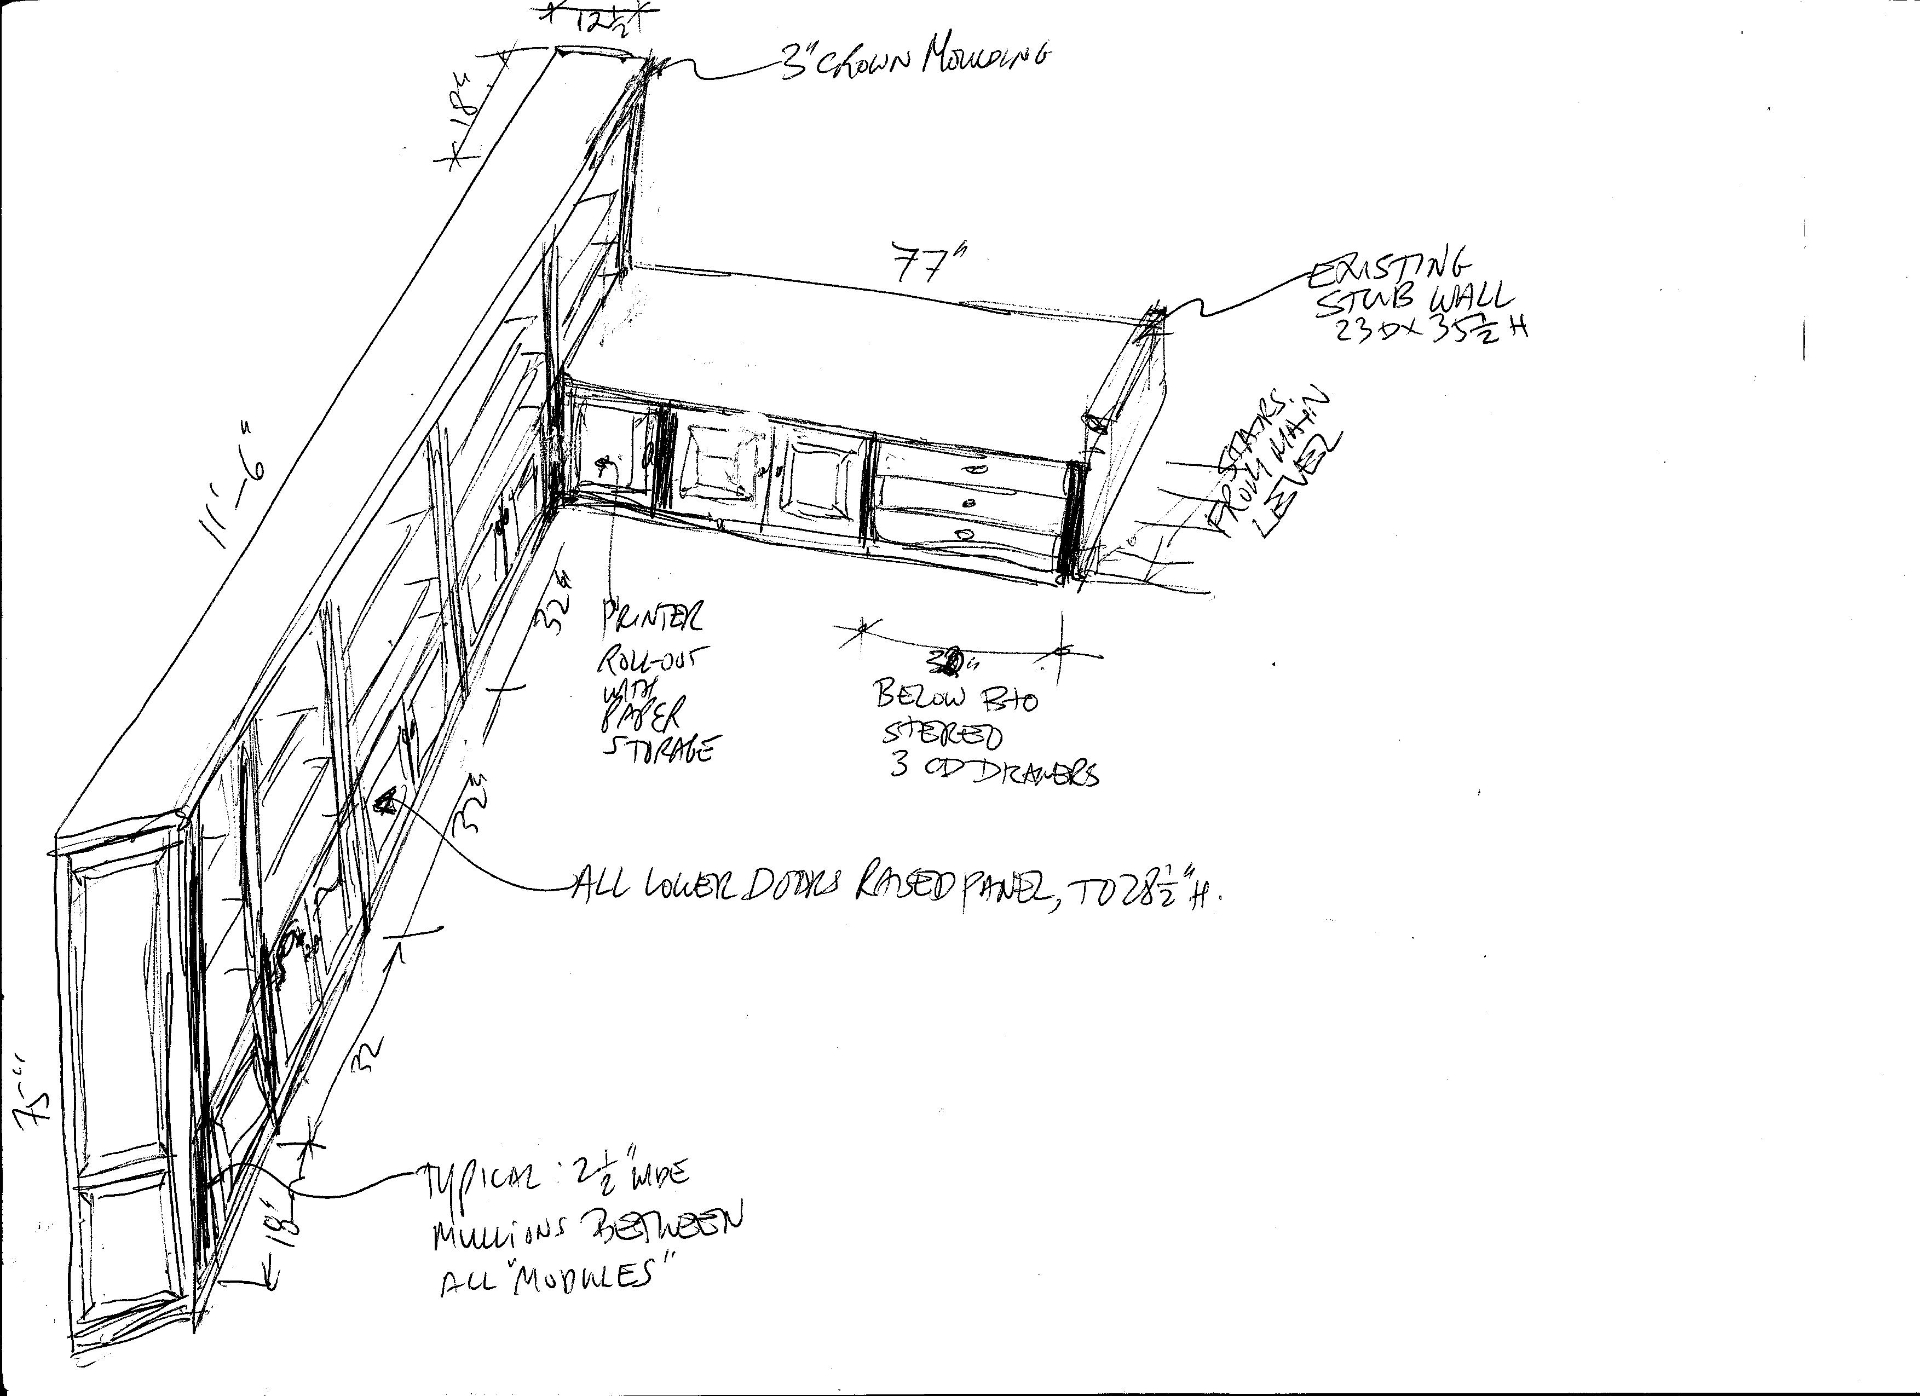 12½
18"
3" CROWN MOULDING
77"
EXISTING
STUB WALL
23 D X 35½ H
STAIRS
FROM MAIN
LEVEL
11'-6"
32"
PRINTER
ROLL-OUT
WITH
PAPER
STORAGE
BELOW B+O
STEREO
3 CD DRAWERS
32"
ALL LOWER DOORS RAISED PANEL, TO 28½" H.
32
75"
TYPICAL: 2½" WIDE
MULLIONS BETWEEN
ALL "MODULES"
18"